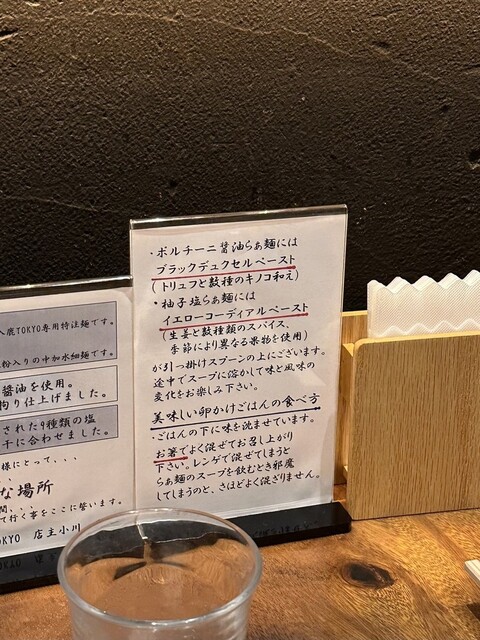 入鹿TOKYO専用特注麺です。
粉入りの中加水細麺です。
醤油を使用。
拘り仕上げました。
された9種類の塩
干に合わせました。
様にとって、、、
な場所
て行く事をここに誓います。
OKYO 店主小川
・ポルチーニ醤油らぁ麺には
ブラックデュクセルペースト
(トリュフと数種のキノコ和え)
・柚子塩らぁ麺には
イエローコーディアルペースト
(生姜と数種類のスパイス、
季節により異なる果物を使用)
が引っ掛けスプーンの上にございます。
途中でスープに溶かして味と風味の
変化をお楽しみ下さい。
美味しい卵かけごはんの食べ方
・ごはんの下に味を沈ませています。
お箸でよく混ぜてお召し上がり
下さい。レンゲで混ぜてしまうと
らぁ麺のスープを飲むとき邪魔
してしまうのと、さほどよく混ざりません。